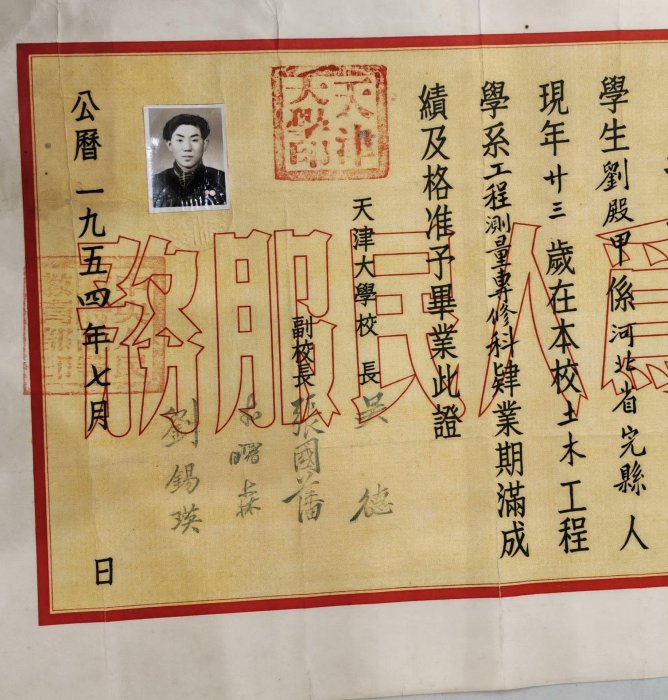 學生劉殿甲係河北省完縣人
現年廿三歲在本校土木工程
學系工程測量專修科肄業期滿成
績及格准予畢業此證
天津大學校長吳德
副校長張國藩
曙森
劉錫瑛
公曆一九五四年七月 日
天津
大學印
為人民服務